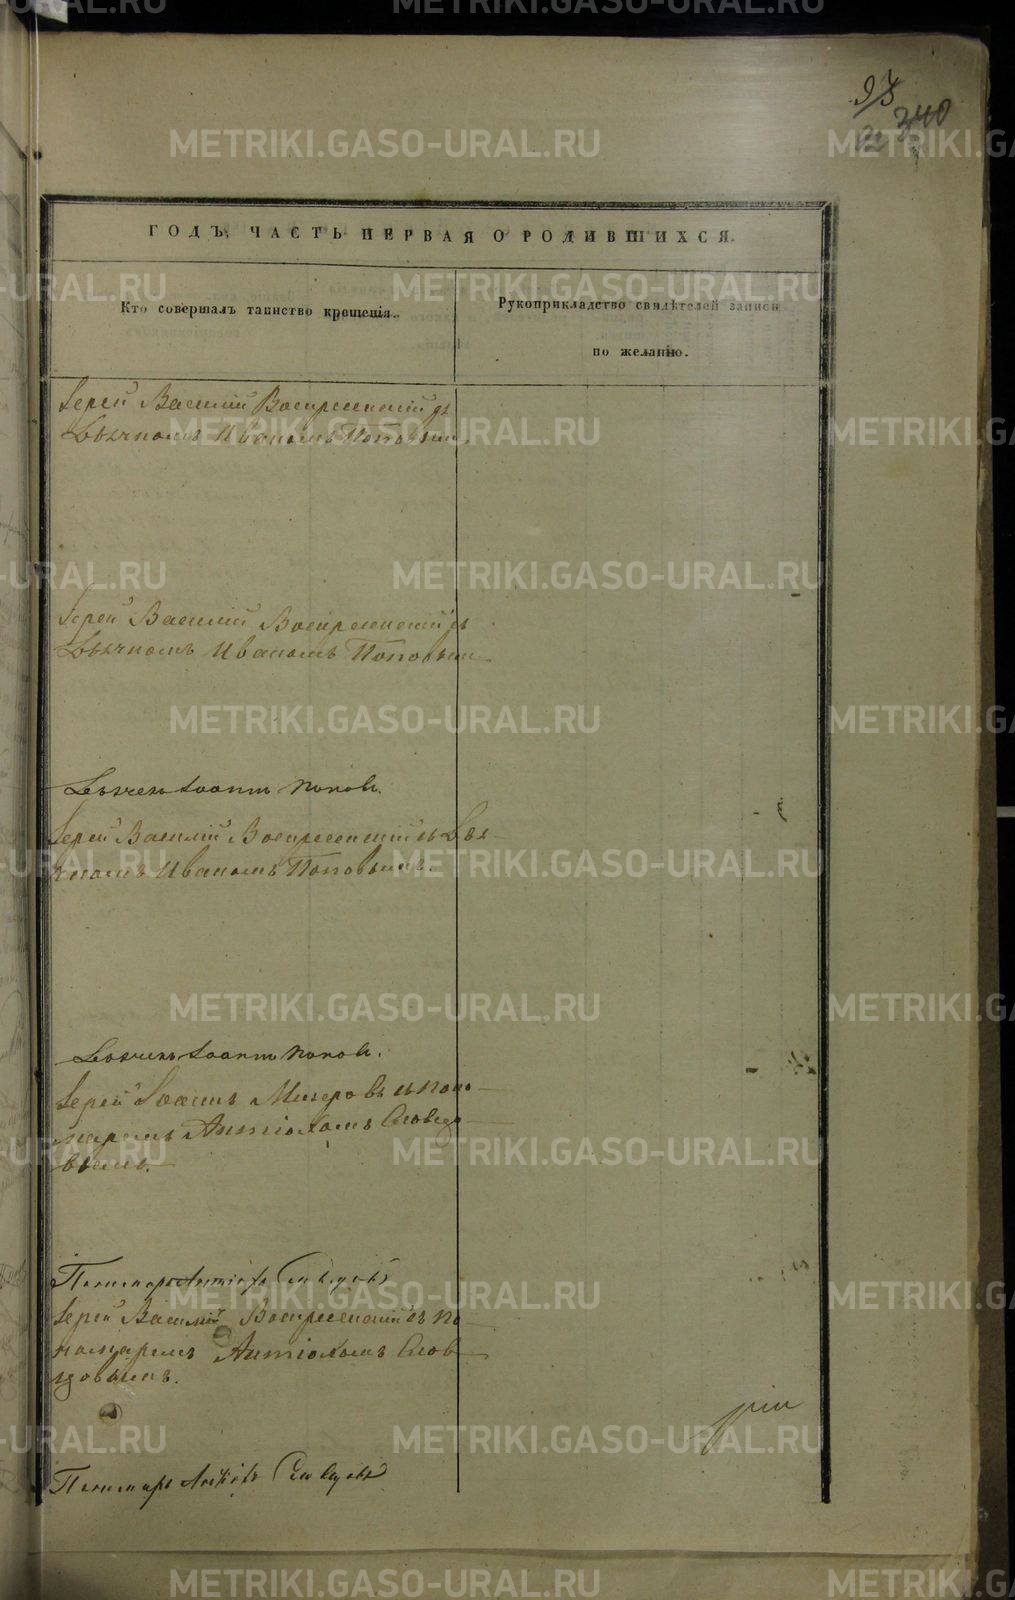 93
340
ГОДЪ, ЧАСТЬ ПЕРВАЯ О РОДИВШИХСЯ.
Кто совершалъ таинство крещенія.
Рукоприкладство свидѣтелей записи
по желанію.
Іерей Василій Воскресенскій съ
Дьячкомъ Иваномъ Поповымъ
Іерей Василій Воскресенскій съ
Дьячкомъ Иваномъ Поповым
Дьячекъ Іоаннъ Поповъ.
Іерей Василій Воскресенскій съ Дья-
чкомъ Иваномъ Поповымъ.
Дьячекъ Іоаннъ Поповъ.
Іерей Іоаннъ съ поно-
маремъ Антіохомъ
вымъ.
Пономарь Антіохъ
Іерей Василій Воскресенскій съ По-
номаремъ Антіохомъ
Пономарь Антіохъ
METRIKI.GASO-URAL.RU